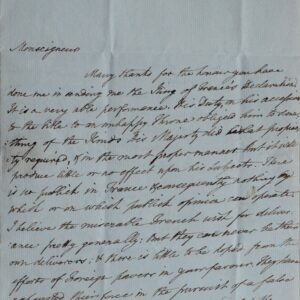 Monseigneur
Many thanks for the honour you have
done me in sending me the King of France's Declaration
It is a very able performance. His duty, on his accession
to the title to an unhappy Throne obliged him to some-
thing of the kind & His Majesty did what proper-
ly required, & in the most proper manner but it will
produce little or no effect upon his Subjects. There
is no publick in France & consequently nothing by
which or on which publick opinion can operate.
I believe the miserable French wish for deliver-
ance pretty generally. But they can never be their
own deliverers; & there is little to be hoped from the
efforts of Foreign powers in your favour. They have
exhausted their force in the pursuit of a false